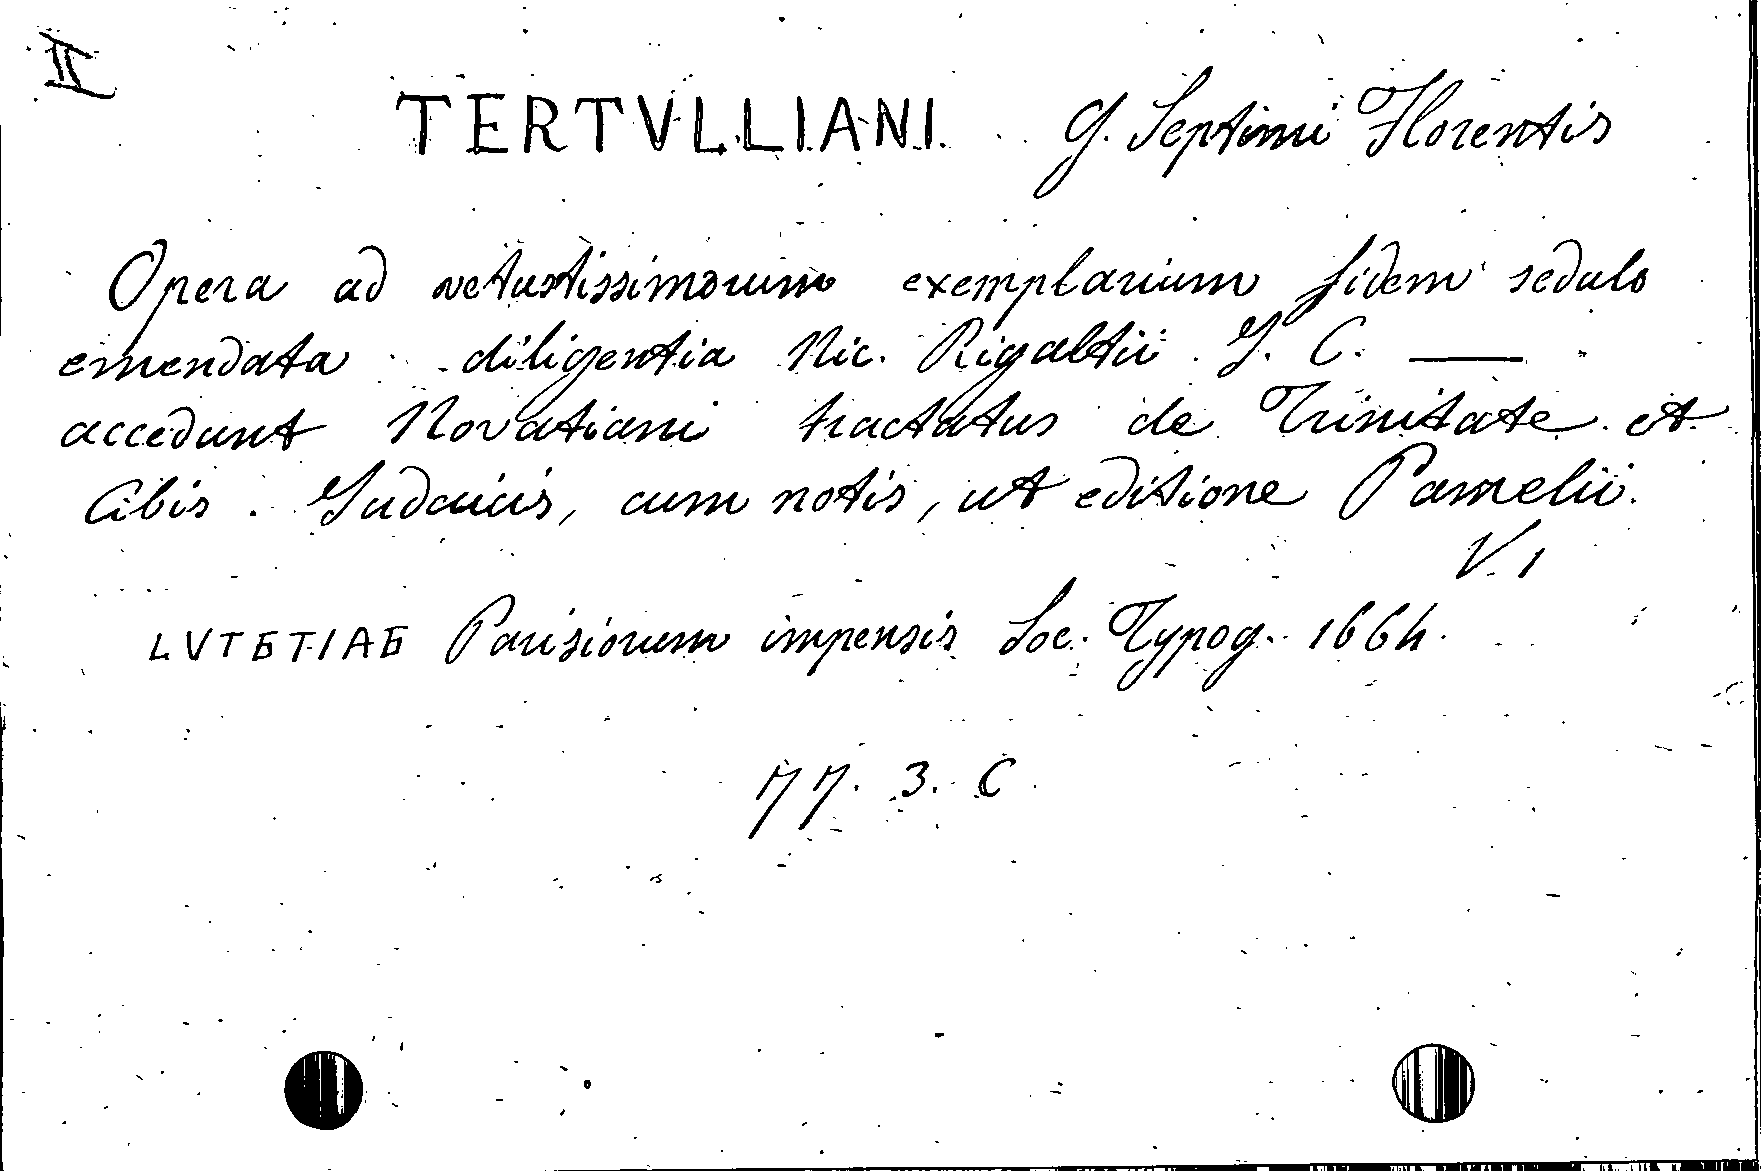 II
TERTVLLIANI G. Septimi Florentis
Opera ad vetustissimorum exemplarium fidem sedulo
emendata diligentia Nic. Rigaltii J. C. —
accedunt Novatiani tractatus de Trinitate et
Cibis Judaicis, cum notis, ut editione Pamelii.
V. 1
LVTETIAE Parisiorum impensis Soc. Typog. 1664.
77. 3. C